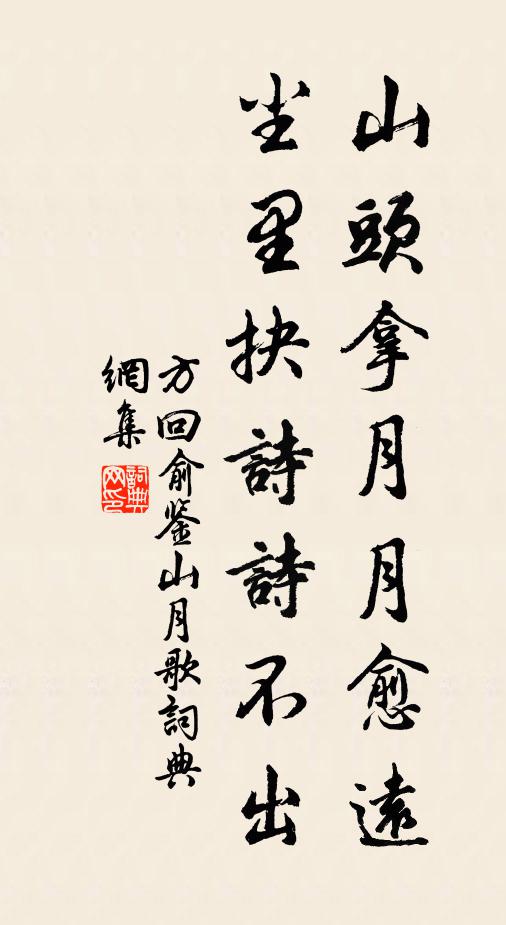 山頭拿月月愈遠
尘里抉詩詩不出
方回俞鉴山月歌詞典
網集
詞典
网印